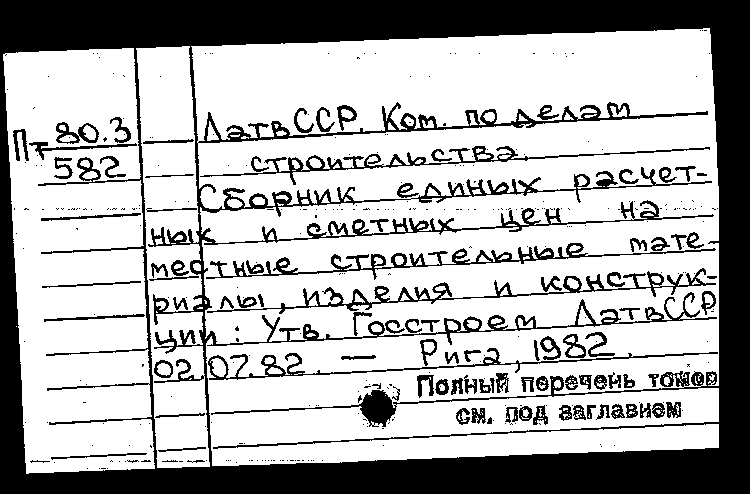 Пт 80.3
582
ЛатвССР. Ком. по делам
строительства.
Сборник единых расчет-
ных и сметных цен на
местные строительные мате-
риалы, изделия и конструк-
ции: Утв. Госстроем ЛатвССР
02.07.82. — Рига, 1982.
Полный перечень томов
см. под заглавием